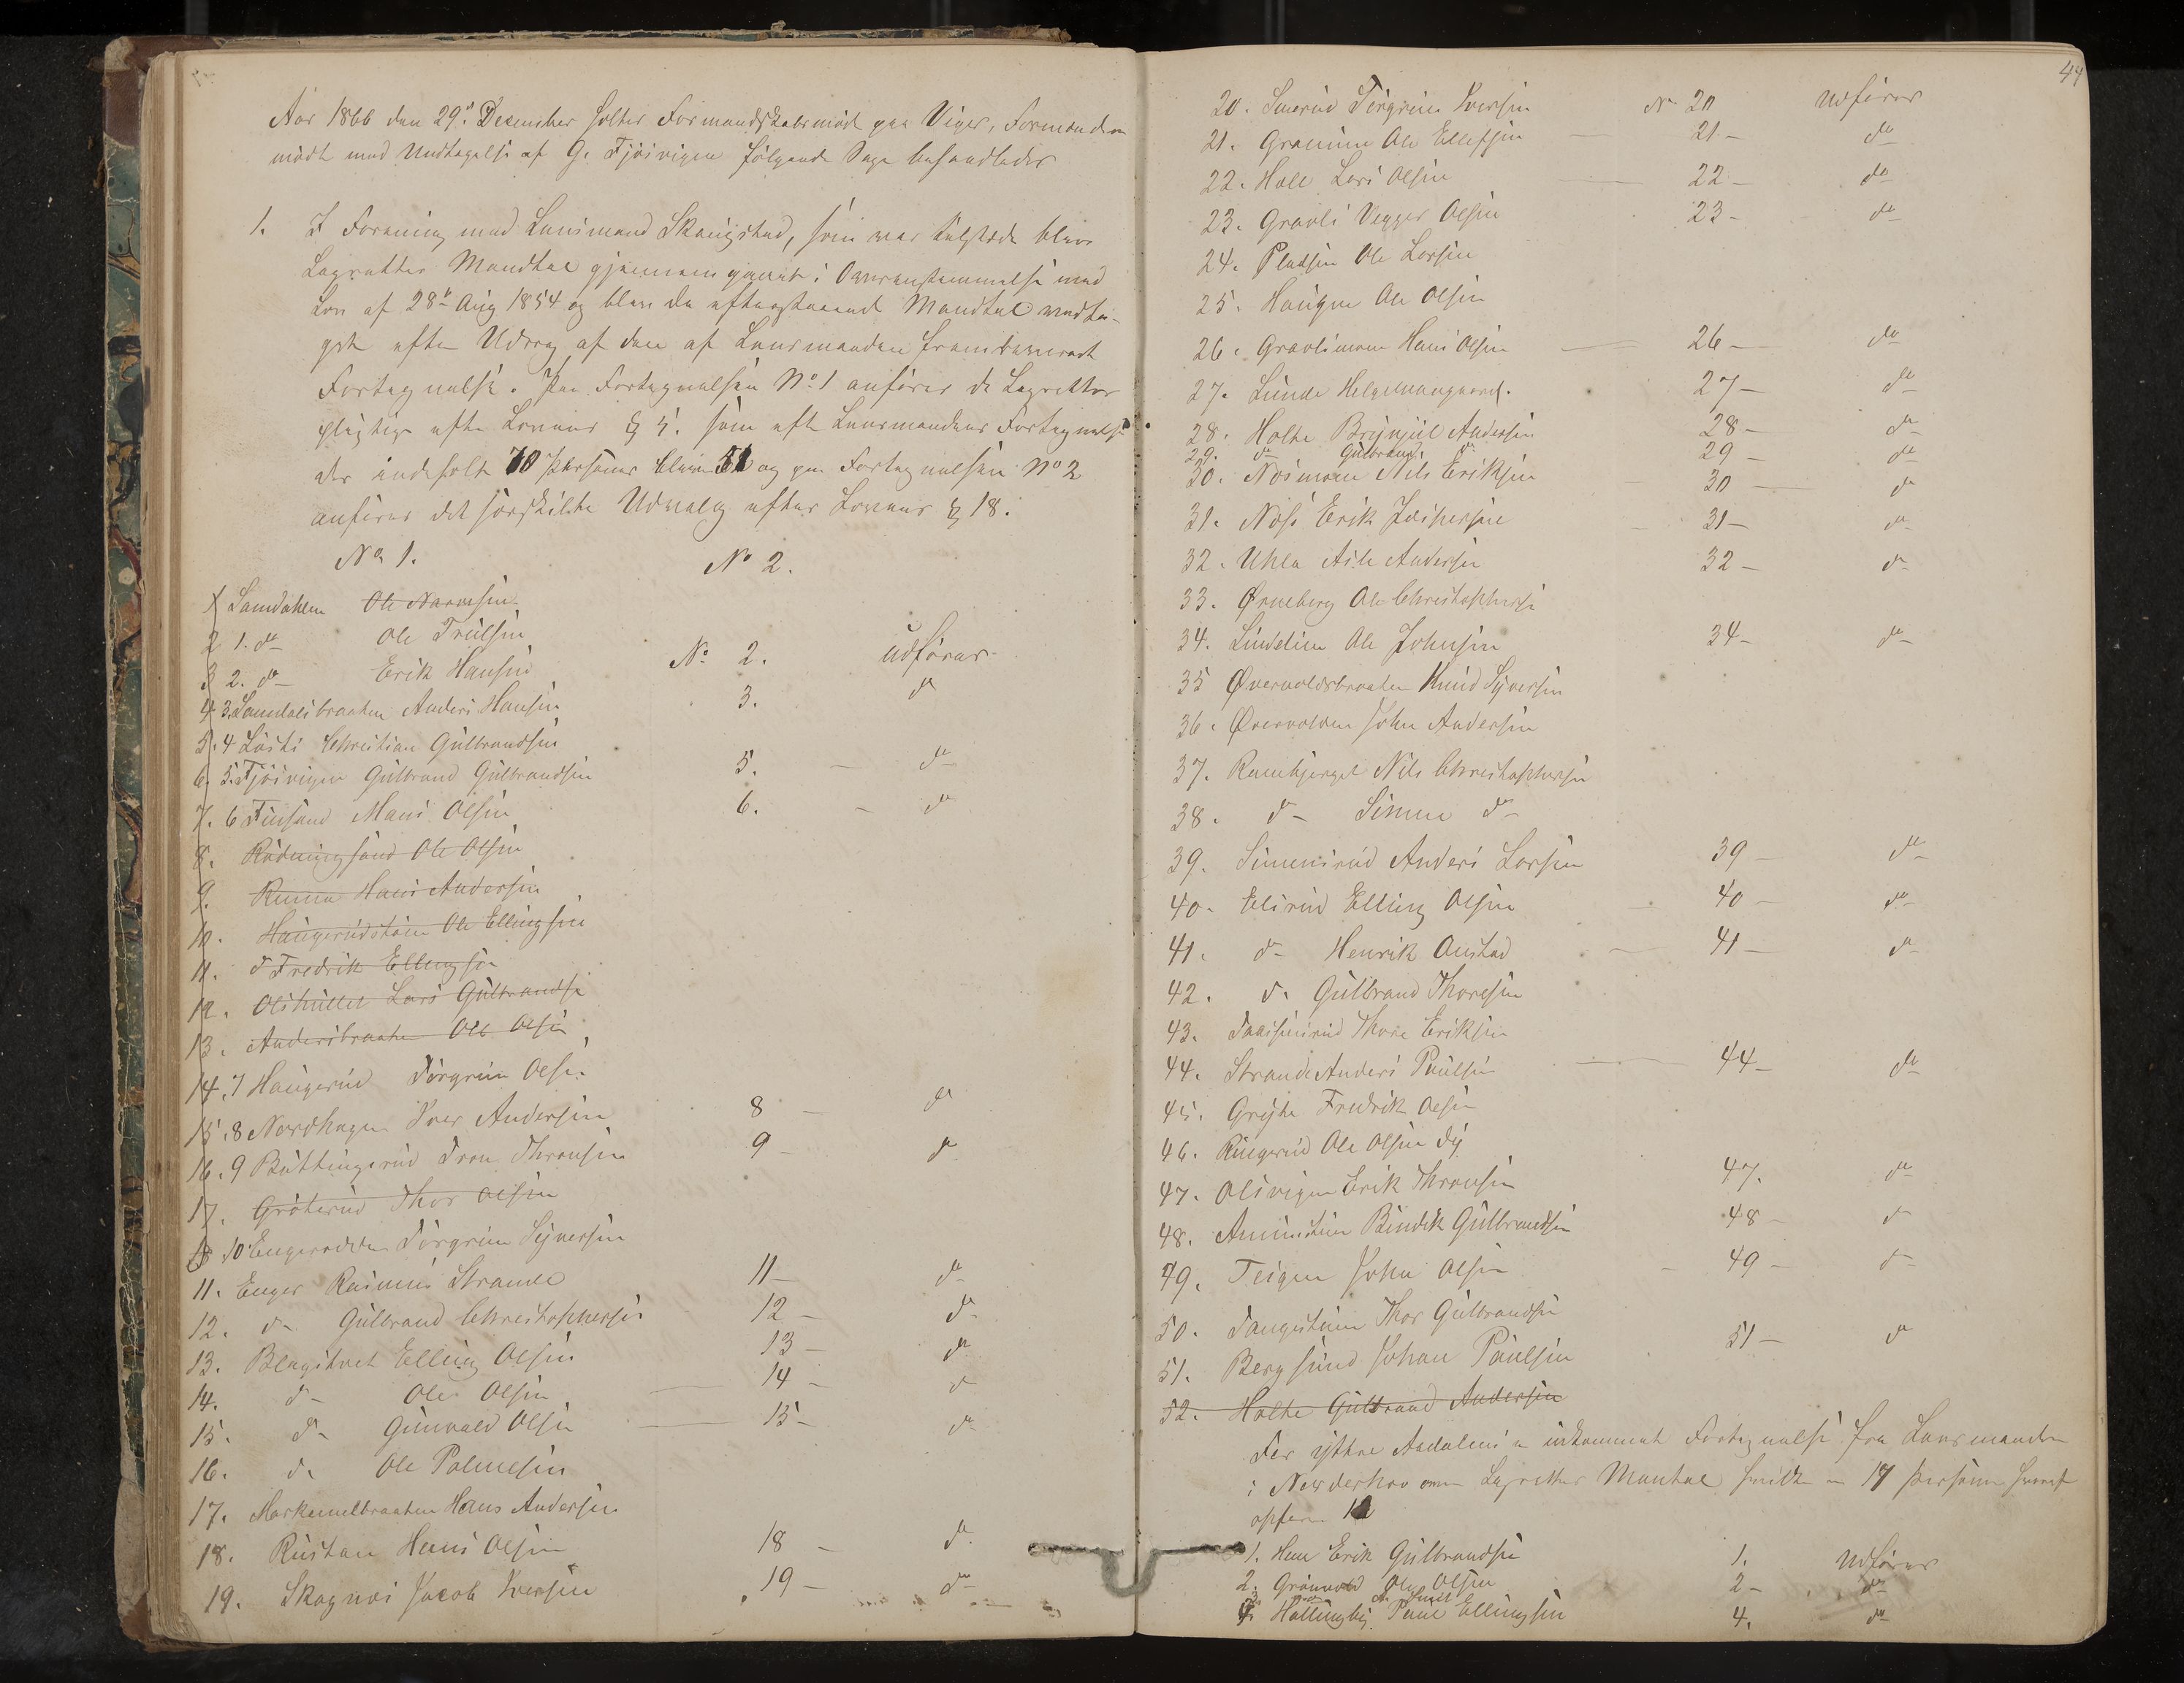 44
Aar 1866 den 29de December holtes Formandskabsmöde paa Viger, Formændene
mödt med Undtagelse af G. Fjösvigen følgende Sager behandledes
1. I Forening med Lensmand Skaugstad, som var tilstæde blev
Lagrettes Mandtal gjennemgaaet i Overensstemmelse med
Lov af 28de Aug 1854 og blev da efterstaaende Mandtal vedta-
get efter Udrag af den af Lensmanden frembaarne
Fortegnelse. Paa Fortegnelsen No 1 anføres de Lagrettes
pligtige efter Lovens § 4. som efter Lensmandens Fortegnelse
der indeholt 70 Personer blev 51 og paa Fortegnelsen No 2
anføres det særskilte Udvalg efter Lovens § 18.
No 1. No 2.
1 Samdahlen Ole
2 1. do Ole Trulsen No 2. udføres
3 2. do Erik Hansen 3. do
4 3. Samdalsbraaten Anders Hansen
5. 4 Christian Gulbrandsen 5. do
6. 5. Fjösvigen Gulbrand Gulbrandsen 6. do
7. 6 Finsand Hans Olsen
8. Ole Olsen
9. Hans Andersen
10. Haugerudstøen Ole Ellingsen
11. do Fredrik Ellingsen
12. Lars Gulbrandsen
13. Andersbraaten Ole Olsen
14. 7 Haugerud Torgrim Olsen
15. 8 Nordhagen Iver Andersen 8 — do
16. 9 Buttingsrud Tron Thronsen 9 — do
17. Gröterud Thor Olsen
18 10 Engerodden Torgrim Syversen
11. Enger Rasmus Strande 11 — do
12. do Gulbrand Christophersen 12 — do
13. Blagstvet Elling Olsen 13 — do
14. do Ole Olsen 14 — do
15. do Gunvald Olsen 15 — do
16. do Ole Palmesen
17. Hans Andersen
18. Rustan Hans Olsen 18 — do
19. Skagnæs Jacob Iversen 19 — do
20. Smerud Torgrim Iversen No 20 Udføres
21. Ole Ellefsen 21 — do
22. Hall Lars Olsen 22 — do
23. Gravli Vegger Olsen 23 — do
24. Pladsen Ole Larsen
25. Haugen Ole Olsen
26. Gravlimoen Hans Olsen 26 — do
27. Lunde Helge 27 — do
28. Holte Brynjul Andersen 28 — do
29. do Gulbrand do 29 — do
30. Næsmoen Nils Eriksen 30 — do
31. Næss Erik 31 — do
32. Andersen 32 — do
33. Ørneberg Ole Christophersen
34. Lindelien Ole Johnsen 34 — do
35 Øvervoldsbraaten Knud Syversen
36. Øvervolden John Andersen
37. Rambjerget Nils Christophersen
38. do Simen do
39. Simensrud Anders Larsen 39 — do
40. Elsrud Elling Olsen 40 — do
41. do Henrik Onstad 41 — do
42. do Gulbrand Thoresen
43. Thore Eriksen
44. Strande Anders Paulsen 44 — do
45. Gryte Fredrik Olsen
46. Ringerud Ole Olsen dy
47. Olsvigen Erik Thronsen 47. do
48. Bendik Gulbrandsen 48 — do
49. Teigen John Olsen 49 — do
50. Tangestuen Thor Gulbrandsen
51. Bergsund Johan Paulsen 51 — do
52. Holte Gulbrand Andersen
For ytre Aadalen er indkommet Fortegnelse fra Lensmanden
i Norderhov over Lagrettes Mantal 17 Personer hvoraf
opføres
1. Hen Erik Gulbrandsen 1. Udføres
2. Grönvold Ole Olsen 2 — do
4. Hallingby Paul Ellingsen 4. do